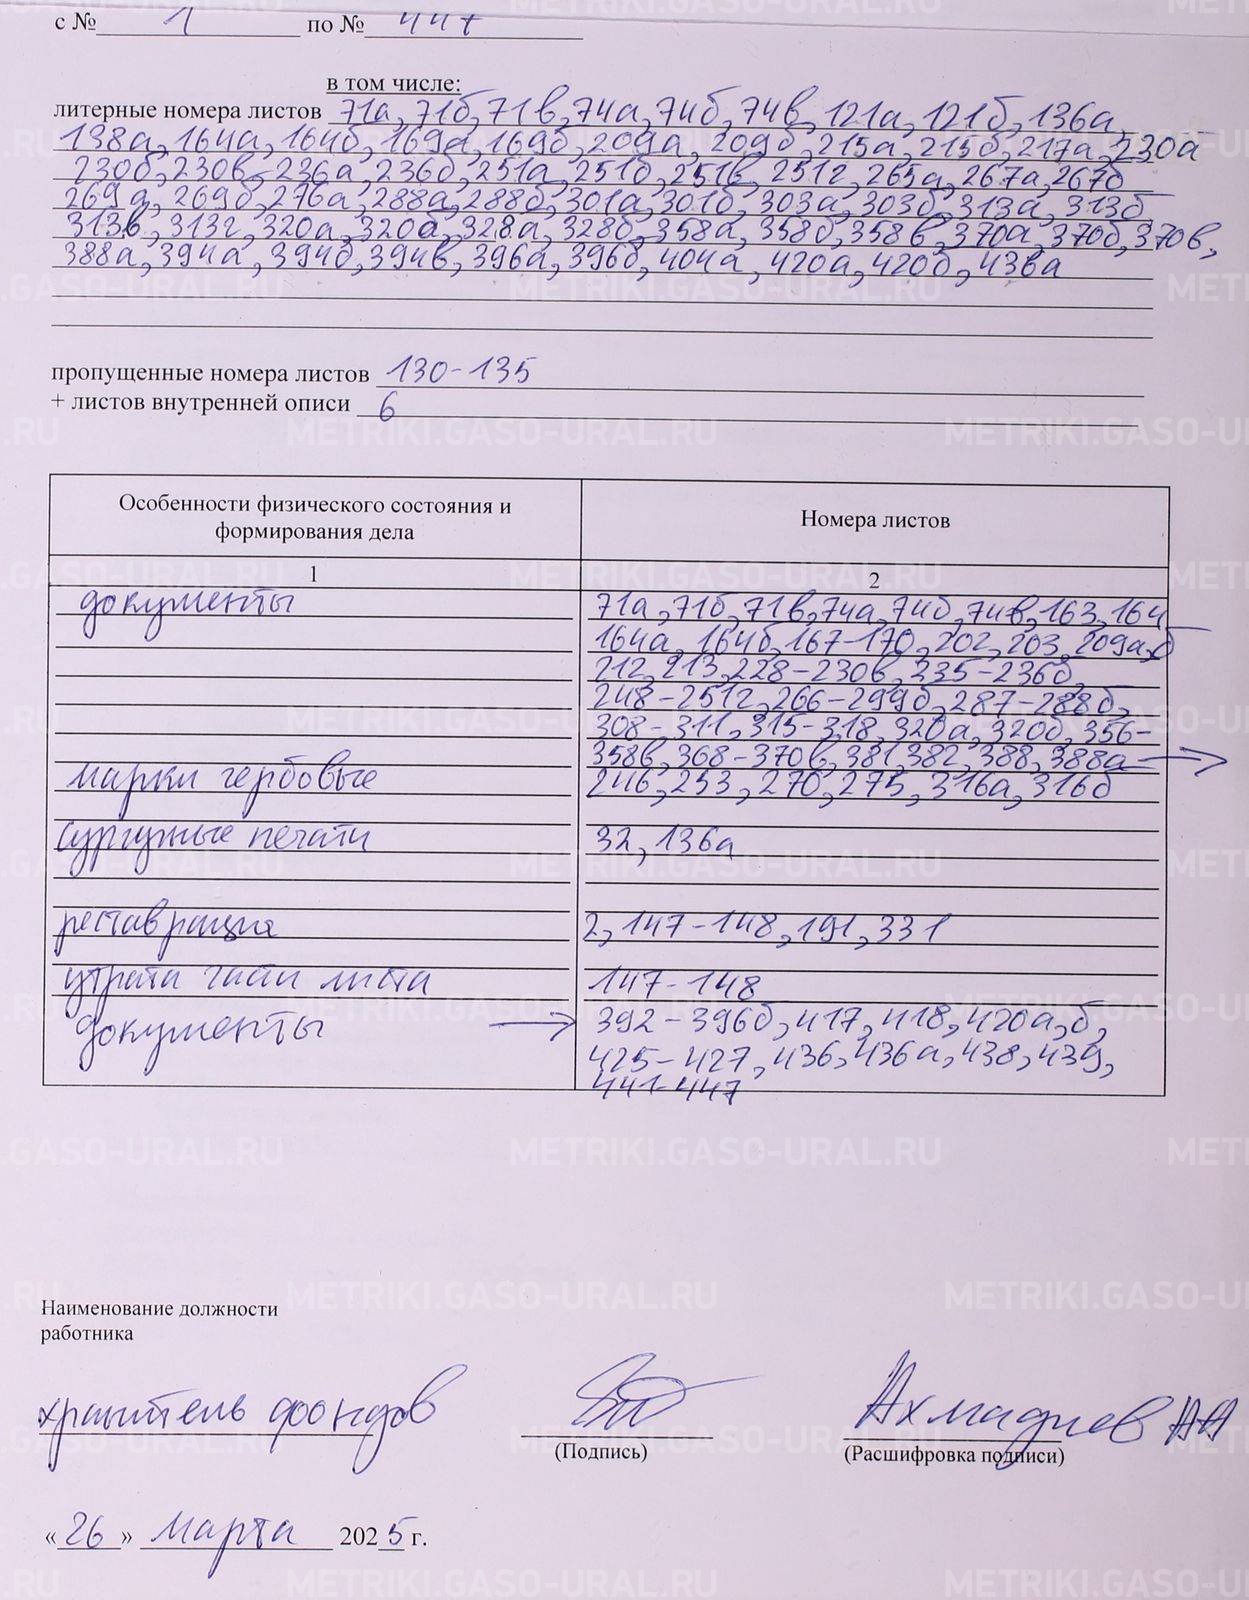 с № 1 по № 447
в том числе:
литерные номера листов 71а, 71б, 71в, 74а, 74б, 74в, 121а, 121б, 136а,
138а, 164а, 164б, 169а, 169б, 209а, 209б, 215а, 215б, 217а, 230а
230б, 230в, 236а, 236б, 251а, 251б, 251в, 251г, 265а, 267а, 267б
269а, 269б, 276а, 288а, 288б, 301а, 301б, 303а, 303б, 313а, 313б
313в, 313г, 320а, 320б, 328а, 328б, 358а, 358б, 358в, 370а, 370б, 370в,
388а, 394а, 394б, 394в, 396а, 396б, 404а, 420а, 420б, 436а
пропущенные номера листов 130-135
+ листов внутренней описи 6
Особенности физического состояния и формирования дела
Номера листов
1 2
документы 71а, 71б, 71в, 74а, 74б, 74в, 163, 164
164а, 164б, 167-170, 202, 203, 209а,б
212, 213, 228-230в, 235-236б,
248-251г, 266-299б, 287-288б,
308-311, 315-318, 320а, 320б, 356-
358в, 368-370в, 381, 382, 388, 388а →
марки гербовые 246, 253, 270, 275, 316а, 316б
сургучные печати 32, 136а
реставрация 2, 147-148, 191, 331
утрата части листа 147-148
документы → 392-396б, 417, 418, 420а,б,
425-427, 436, 436а, 438, 439,
441-447
Наименование должности
работника
хранитель фондов Ахмадиев АА
(Подпись) (Расшифровка подписи)
«26» марта 2025 г.
METRIKI.GASO-URAL.RU